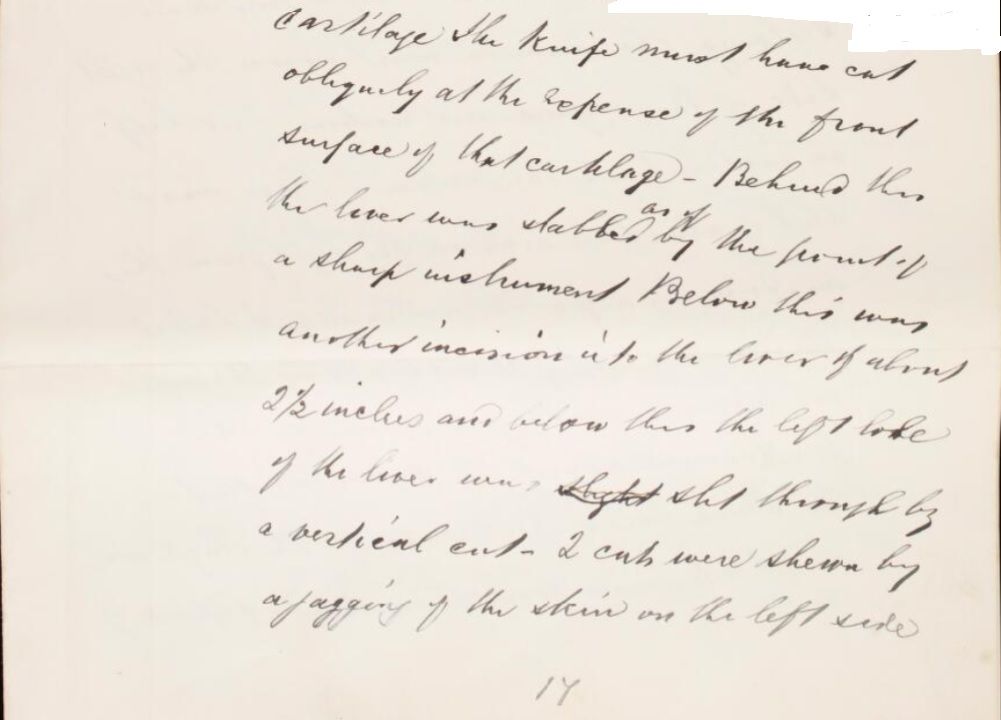 cartilage the knife must have cut
obliquely at the expense of the front
surface of that cartilage – Behind this
as if
the liver was stabbed by the point of
a sharp instrument Below this was
another incision into the liver of about
2½ inches and below this the left lobe
of the liver was slight slit through by
a vertical cut – 2 cuts were shewn by
a jagging of the skin on the left side
17